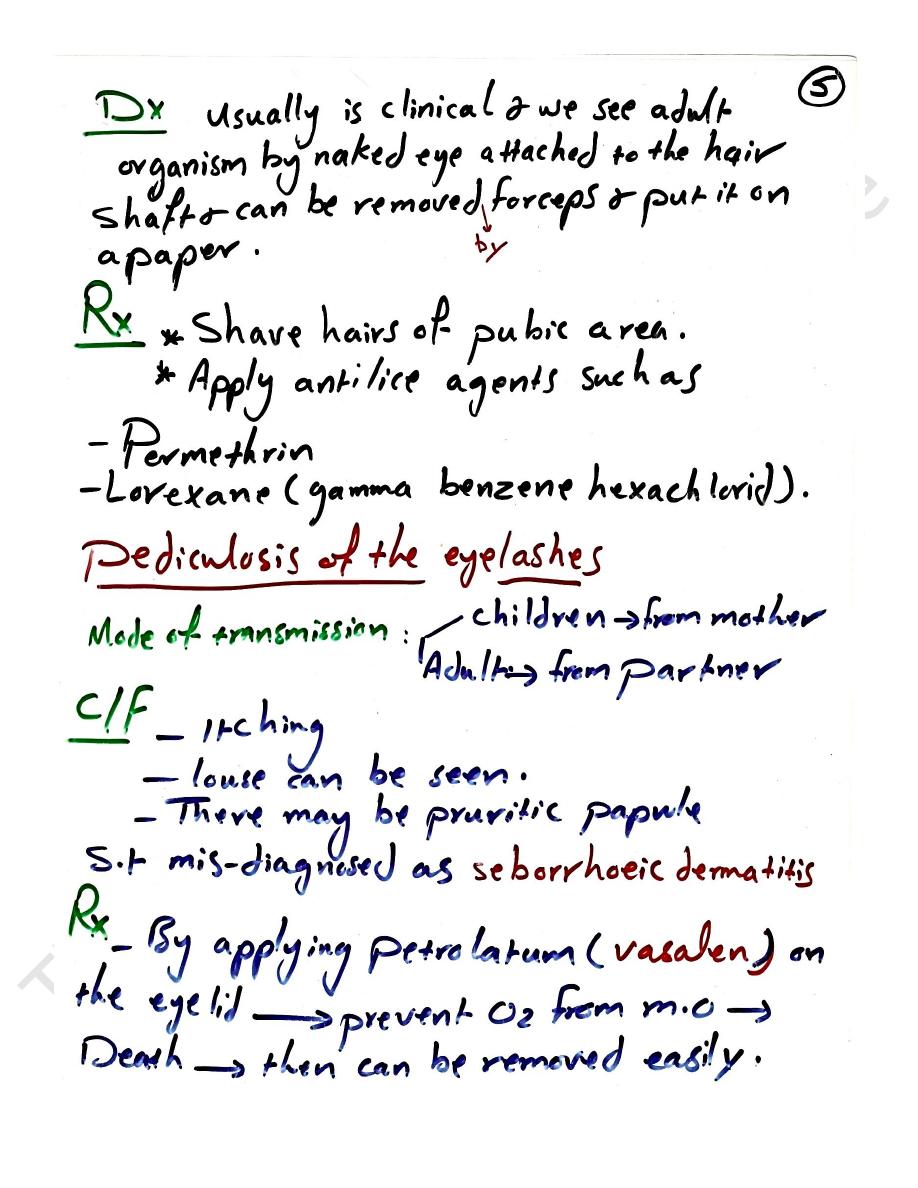 5
Dx usually is clinical & we see adult
organism by naked eye attached to the hair
shaft & can be removed by forceps & put it on
a paper.
Rx * Shave hairs of pubic area.
* Apply antilice agents such as
- Permethrin
- Lorexane (gamma benzene hexachlorid).
Pediculosis of the eyelashes
Mode of transmission : children → from mother
Adult → from partner
C/F - Itching
- louse can be seen.
- There may be pruritic papule
S.t mis-diagnosed as seborrhoeic dermatitis
Rx - By applying petrolatum (vasalen) on
the eyelid → prevent O2 from m.o →
Death → then can be removed easily.